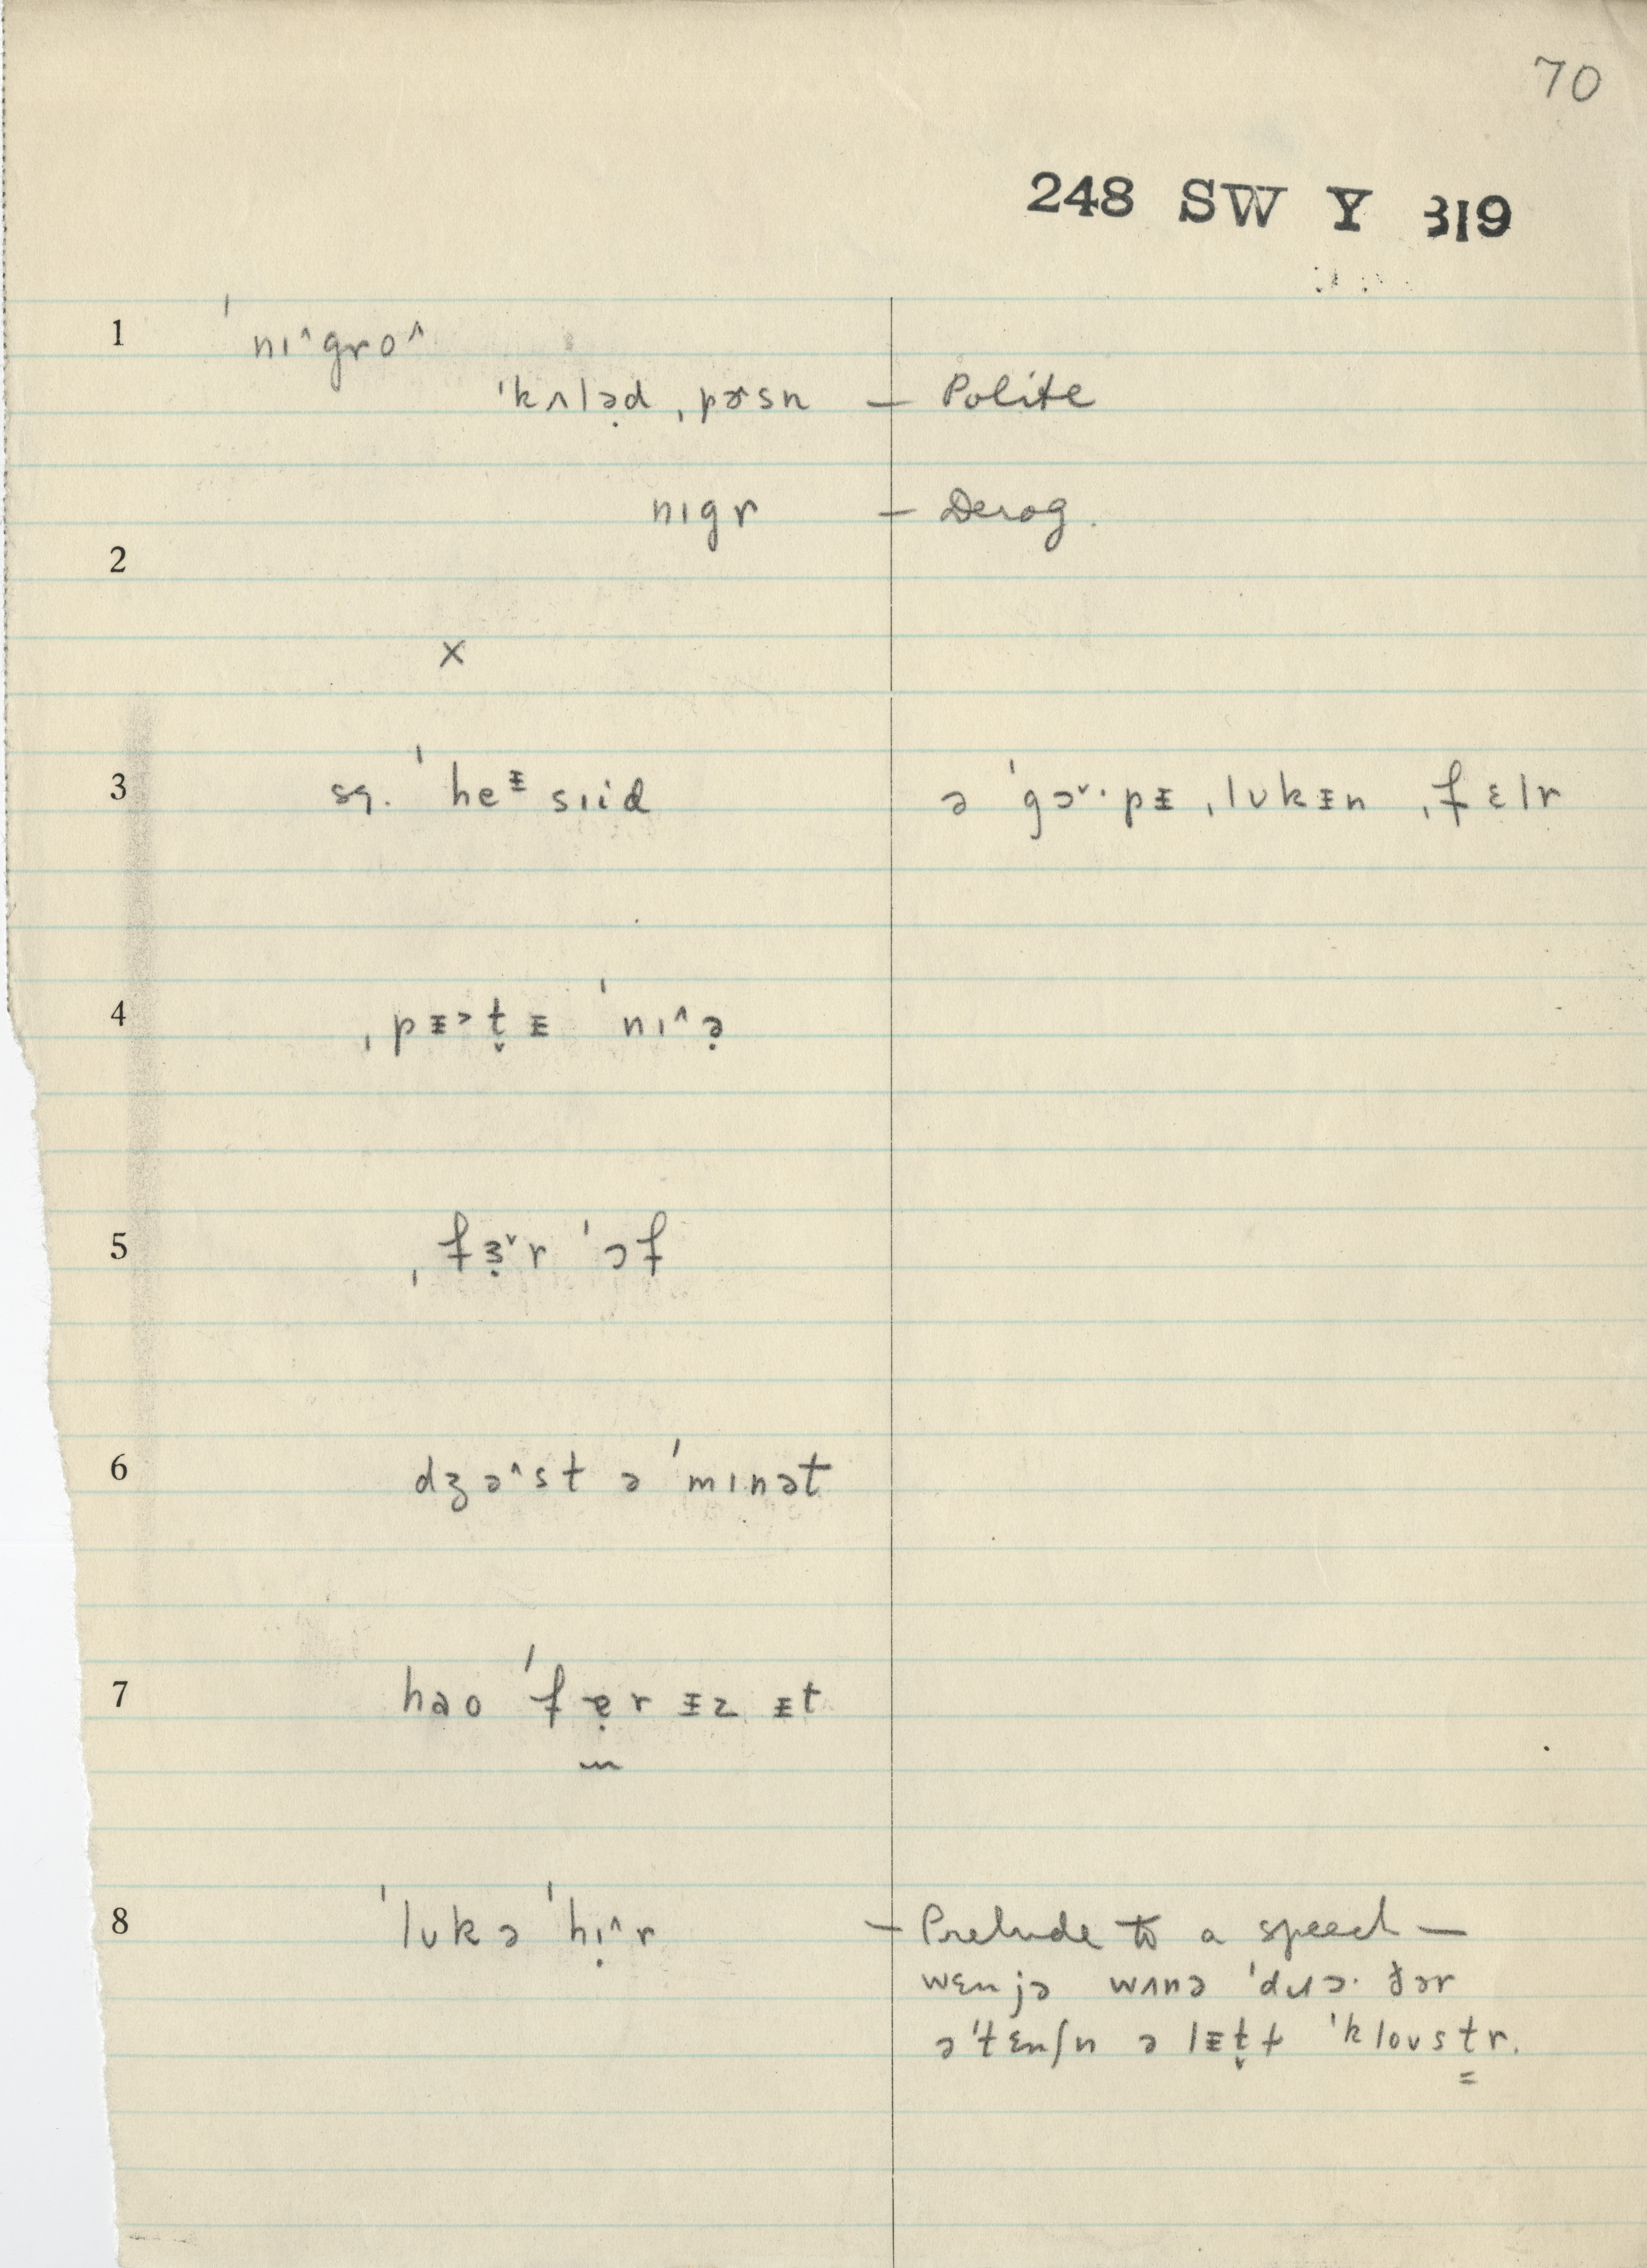 70
248 SW Y 319
1 ˈnɪ^gro^
ˈkʌləd ˌpɚsn — Polite
nɪgr — Derog.
2
x
3 sq. ˈheᵻsiid ə ˈgɔˇ·pᵻ ˌlʊkᵻn ˌfɛlr
4 ˌpᵻ˃t̬ᵻ ˈnɪ^ə̣
5 ˌfɜ̣ˇr ˈɔf
6 dʒə^st ə ˈmɪnət
7 həo ˈfẹr ᵻz ᵻt
8 ˈlʊkə ˈhɪ̣^r — Prelude to a speech —
wɛnjə wʌnə
əˈtɛnʃn ə lᵻt̬ɫ ˈkloʊstr.